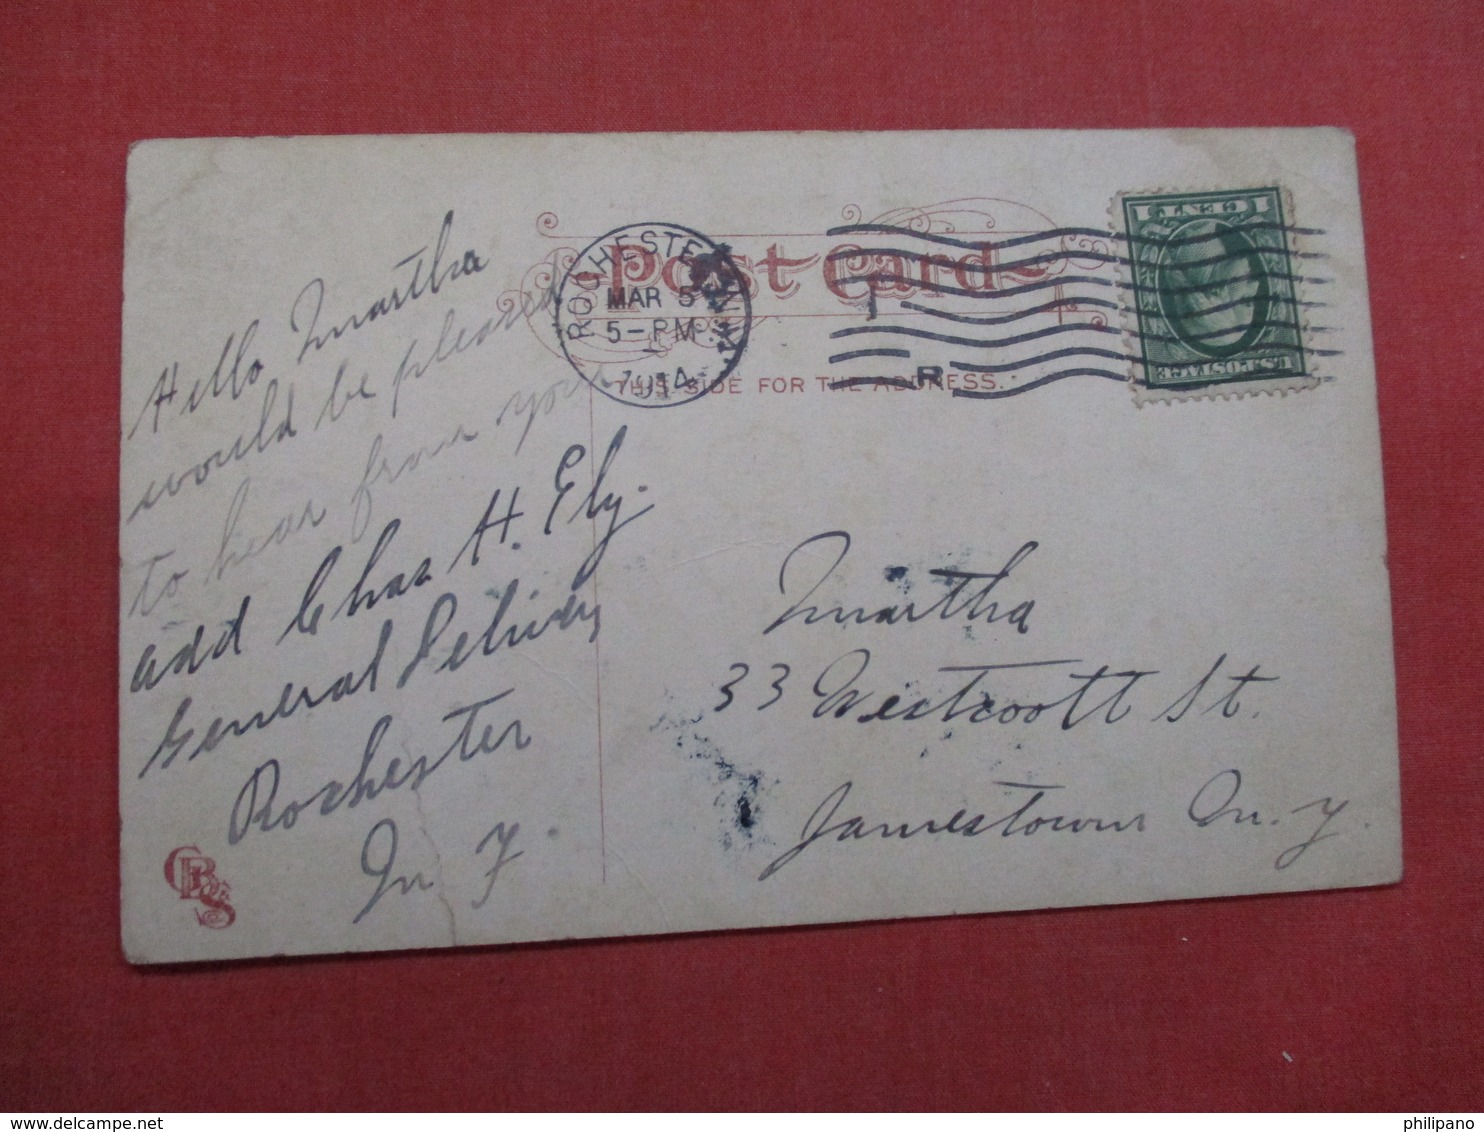 Post Card
THIS SIDE FOR THE ADDRESS.
ROCHESTER, N.Y.
MAR 5
5-PM
1914
R.
1 CENT 1
U.S. POSTAGE
Hello Martha
would be pleased
to hear from you
add Chas H. Ely.
General Delivery
Rochester
N Y.
Martha
33 Westcott St.
Jamestown N. Y.
delcampe.net
philipano